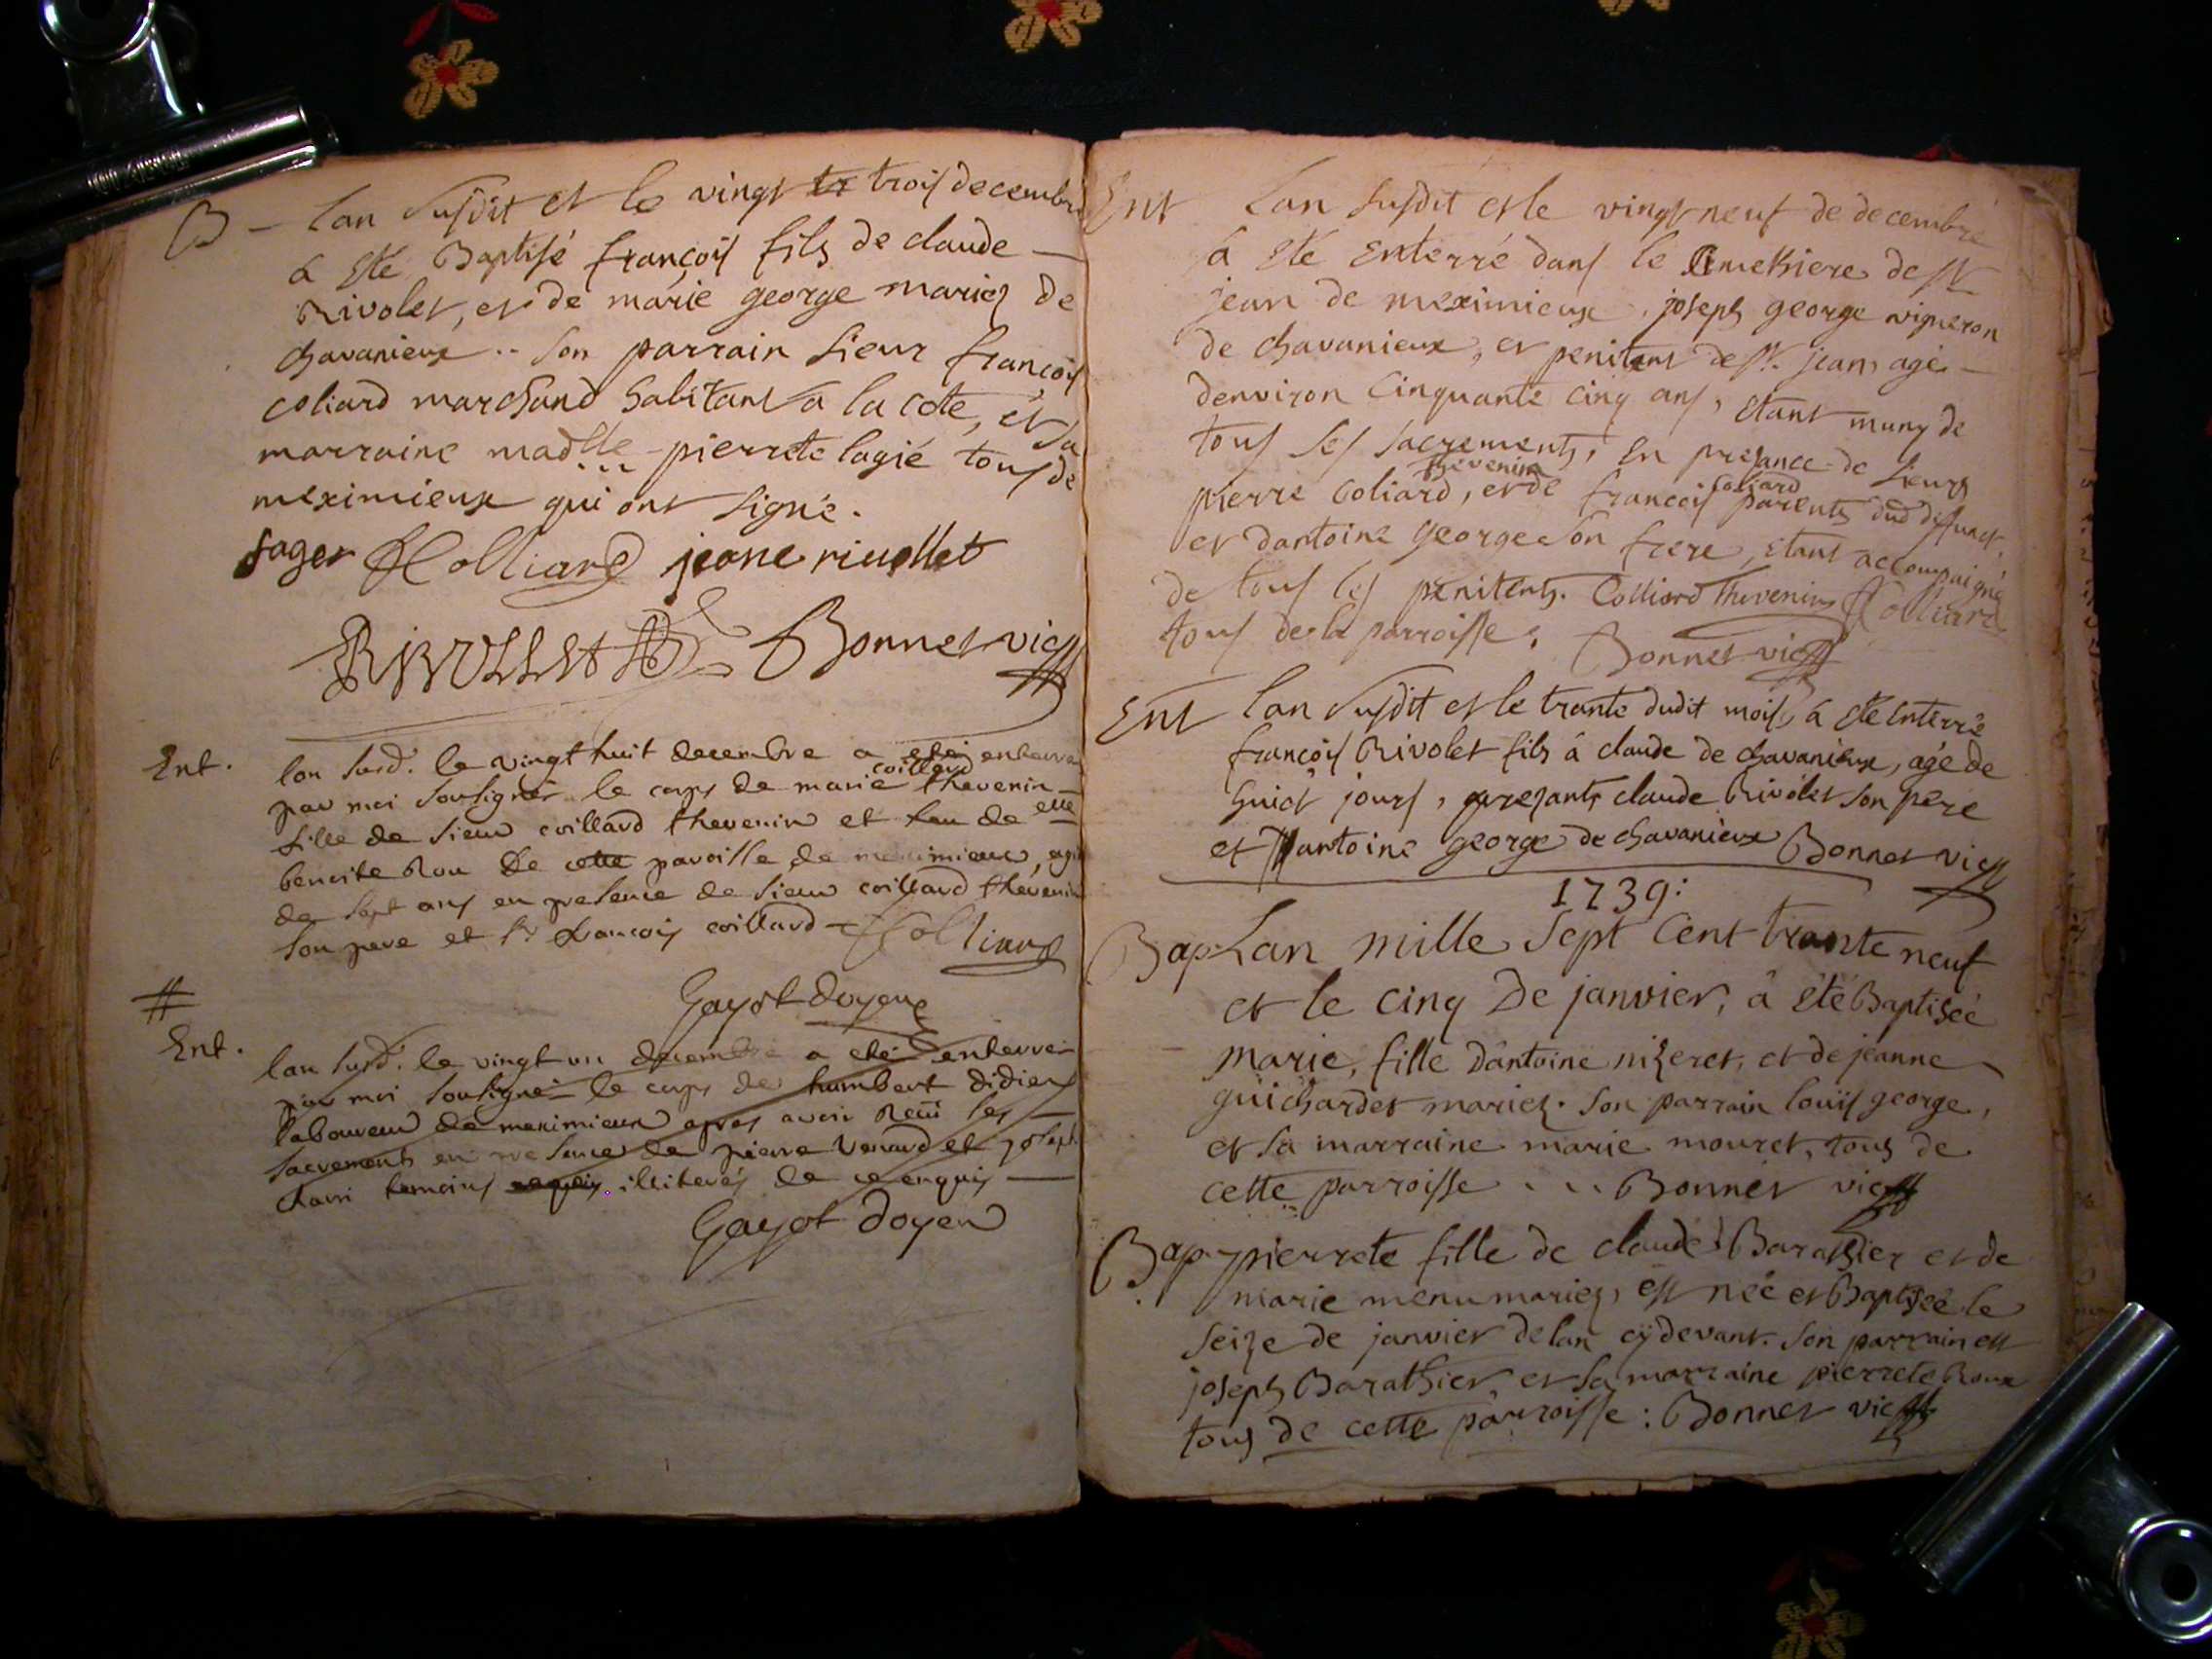 B – lan susdit et le vingt tr trois decembre
a été Baptisé françois fils de claude –
Rivolet, et de marie george mariez de
chavanieux .. son parrain sieur françois
coliard marchand habitant a la cote, et sa
marraine madlle pierrete lagié tous de
meximieux qui ont signé.
sager fColliard jeane riuollet
RIVOLLET Bonnet vic
Ent. lan susd. le vingt huit decembre a eté enterre
par moi soussigné le corps de marie coillard thevenin –
fille de sieur coillard thevenin et feu de elle
benoite Rou de cette paroisse de meximieux, agé
de sept ans en presence de sieur coillard thévenin
son pere et sr françois coillard – fColliard
Gayot doyen
#
Ent. lan susd. le vingt un decembre a eté enterré
par moi soussigné le corps de humbert didier
laboureur de meximieux apres avoir Recu ses –
sacrements en presence de pierre Venard et joseph
charvi temoins illiterés de ce enquis –
Gayot doyen
Ent Lan susdit et le vingt neuf de decembre
à été Enterré dans le Cimethiere de st
jean de meximieux, joseph george vigneron
de chavanieux, et penitent de st. jean, agé –
denviron Cinquante cinq ans, étant muny de
tous ses sacrements, En presance de sieurs
pierre coliard thevenin, et de françois coliard parents dud deffunct,
et dantoine george son frere, étant accompaigné
de tous les penitents. Colliard Thevenin fColliard
tous de la parroisse. Bonnet vic
Ent lan susdit et le trante dudit mois, à été Enterré
françois Rivolet fils à claude de chavanieux, agé de
huict jours, presants claude Rivolet son père
et antoine george de chavanieux Bonnet vic
1739:
Bap. Lan mille Sept Cent trante neuf
et le cinq De janvier, à été Baptisée
marie, fille Dantoine nizeret, et de jeanne
guichardet mariez. son parrain louis george,
et sa marraine marie mouret, tous de
cette parroisse ... Bonnet vic
Bap. pierrete fille de claude Barathier et de
marie menu mariez, est née et Baptizée le
seize de janvier de lan cydevant. son parrain est
joseph Barathier, et sa marraine pierrete Roux
tous de cette parroisse : Bonnet vic